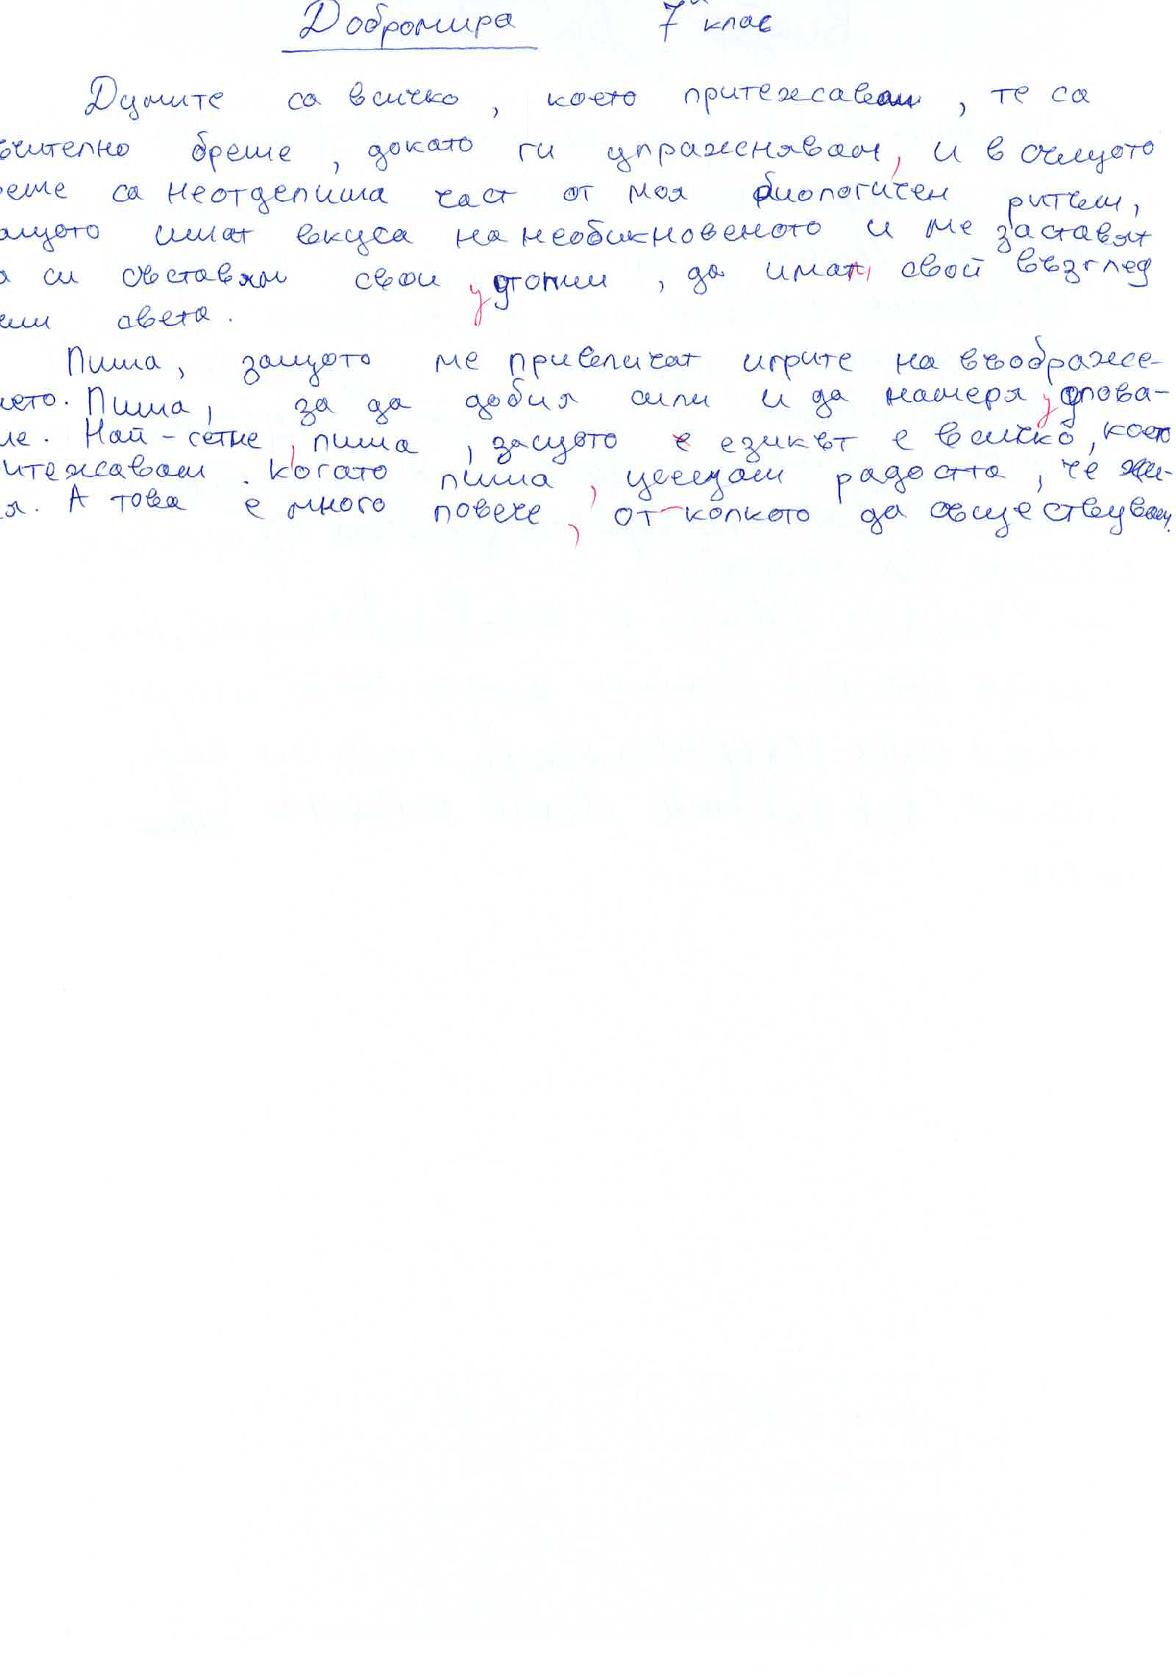 Добромира 7 клас
Думите са всичко, което притежавам, те са
чително бреме, докато ги упражнявам, и в същото
еме са неотделима част от моя биологичен ритъм,
ащото имат вкуса на необикновеното и ме заставят
а си съставям свои утопии, да имам свой възглед
ъм света.
Пиша, защото ме привличат игрите на въображе-
ието. Пиша, за да добия сили и да намеря упова-
ие. Най-сетне, пиша, защото е езикът е всичко, което
итежавам. когато пиша, усещам радостта, че жи-
я. А това е много повече, отколкото да съществувам.